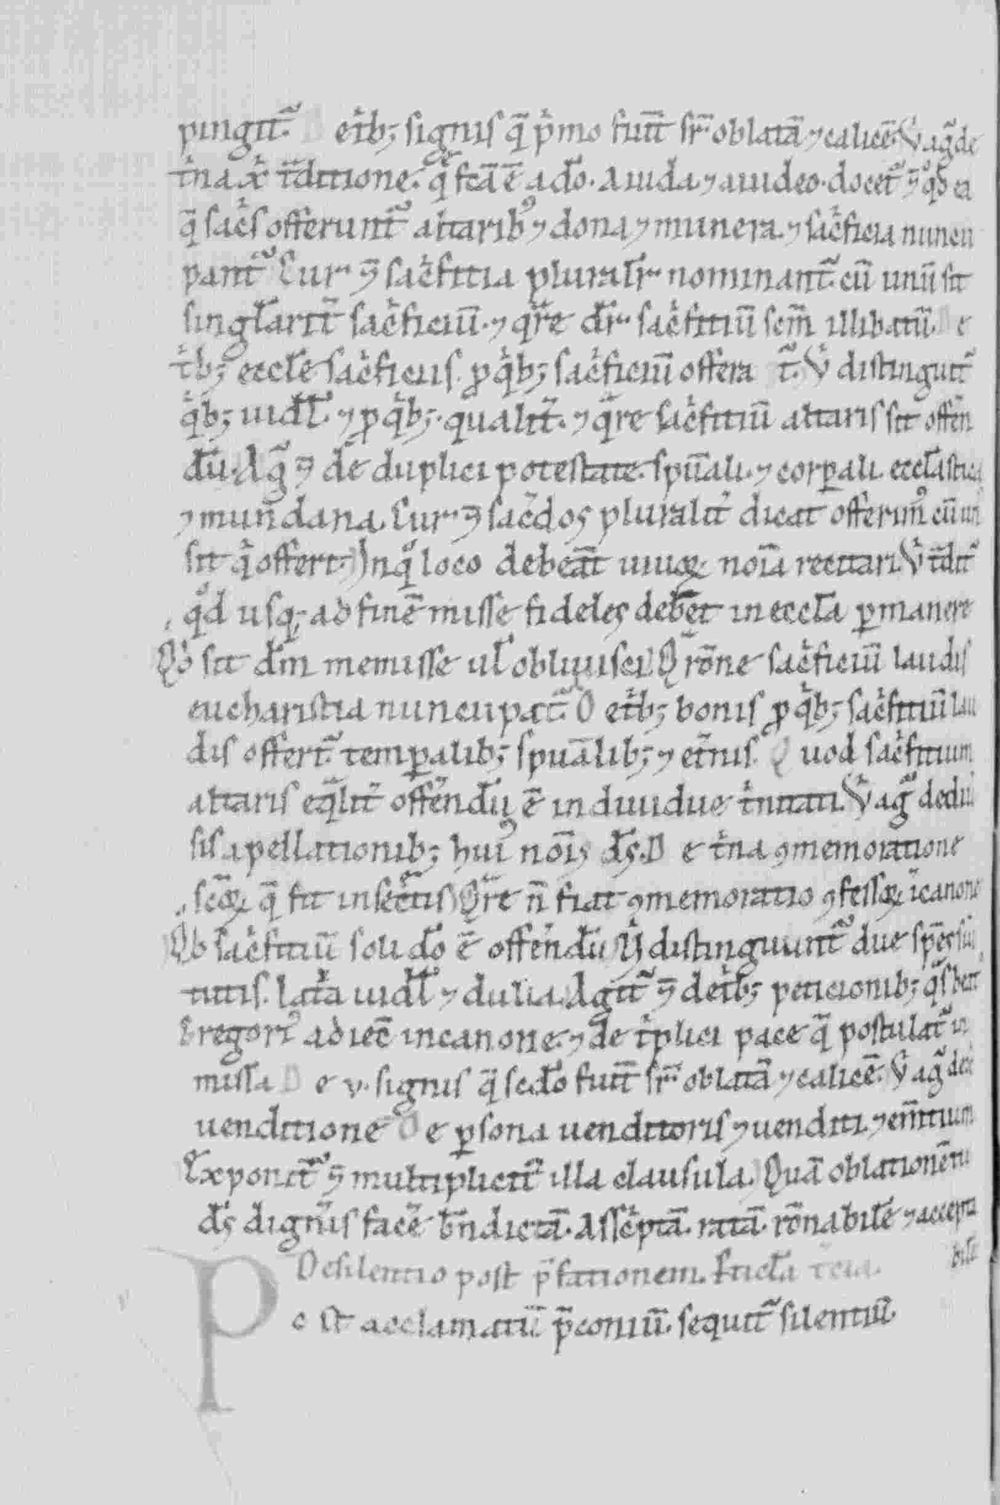 pingit᷑. D etb; signis q̄ p̍mo fiūt sr̄ oblatā ⁊ calicē. V̍ agr̄ de
t̍na xp̄i t̄ditione. q̄ fcā ē a dō. a iuda ⁊ a iudeo. docet᷑ ⁊ qd ea
q̄ sacs offerunt᷑ altarib⁹ ⁊ dona ⁊ munera. ⁊ sac̍ficia nuncu
pant᷑ Cur ⁊ sac̍fitia pluralr̄ nominant᷑. cū unū sit
singlarit̄ sac̍ficiū. ⁊ qr̄e dr̄ sac̍fitiū scm̄ illibatū. D e
t̍b; eccl̄e sac̍ficiis. ꝓ q̍b; sac̍ficiū offera t᷑. V̍ distinguit᷑
q̍b; uidl̄. ⁊ ꝓ q̍b;. qualit̄. ⁊ qr̄e sac̍fitiū altaris sit offen
dū. Agr̄ ⁊ de duplici potestate. spūali. ⁊ corꝑali. eccl̄astica
⁊ mundana. Cur ⁊ sac̄dos pluralit̄ dicat offerim⁹ cū un⁹
sit q̍ offert. In q° loco debeāt uiuoꝝ noīa recitari. V̍ t̄dit᷑
qd usq; ad finē misse fideles debēt in eccl̄a ꝑmanere
Qd sit dm̄ meminisse ul̄ obliuisci. Q rōne sac̍ficiū laudis
eucharistia nuncupat᷑. D e t̍b; bonis ꝓ q̍b; sac̍fitiū lau
dis offert᷑ temꝑalib; spūalib; ⁊ et̄nis. Quod sac̍fitium
altaris eq̄lit̄ offendū ē indiuidue t̍nitati. V̍ agr̄ de diu̍
sis apellationib; hui⁹ noīs ds̄. D e t̍na ꝯmemoratione
scōꝝ q̄ fit in sec̄tis Qr̄e n̄ fiat ꝯmemoratio ꝯfessoꝝ ī canone
Qd sac̍fitiū soli dō ē offendū. V̍ distinguunt᷑ due sp̄es sui
tutis. lat̍a uidl̄ ⁊ dulia. Agit᷑ ⁊ de t̍b; peticionib; q̄s beat⁹
Gregori⁹ adiec̄ in canone. ⁊ de t̍plici pace q̄ postulat᷑ in
missa D e v. signis q̄ scdō fiūt sr̄ oblatā ⁊ calicē. V̍ agr̄ de xp̄i
uenditione D e ꝑsona uenditoris ⁊ uenditi. ⁊ em̄tium
Exponit᷑ ⁊ multiplicit̄ illa clausula. Quā oblationē tu
ds̄ digneris face b̄ndictā. Ascptā. ratā. rōnabilē ⁊ accepta
bile
De silentio post p̄fationem. Rticl̄a tcia.
P ost acclamatū p̄coniū. sequit᷑ silentiū.